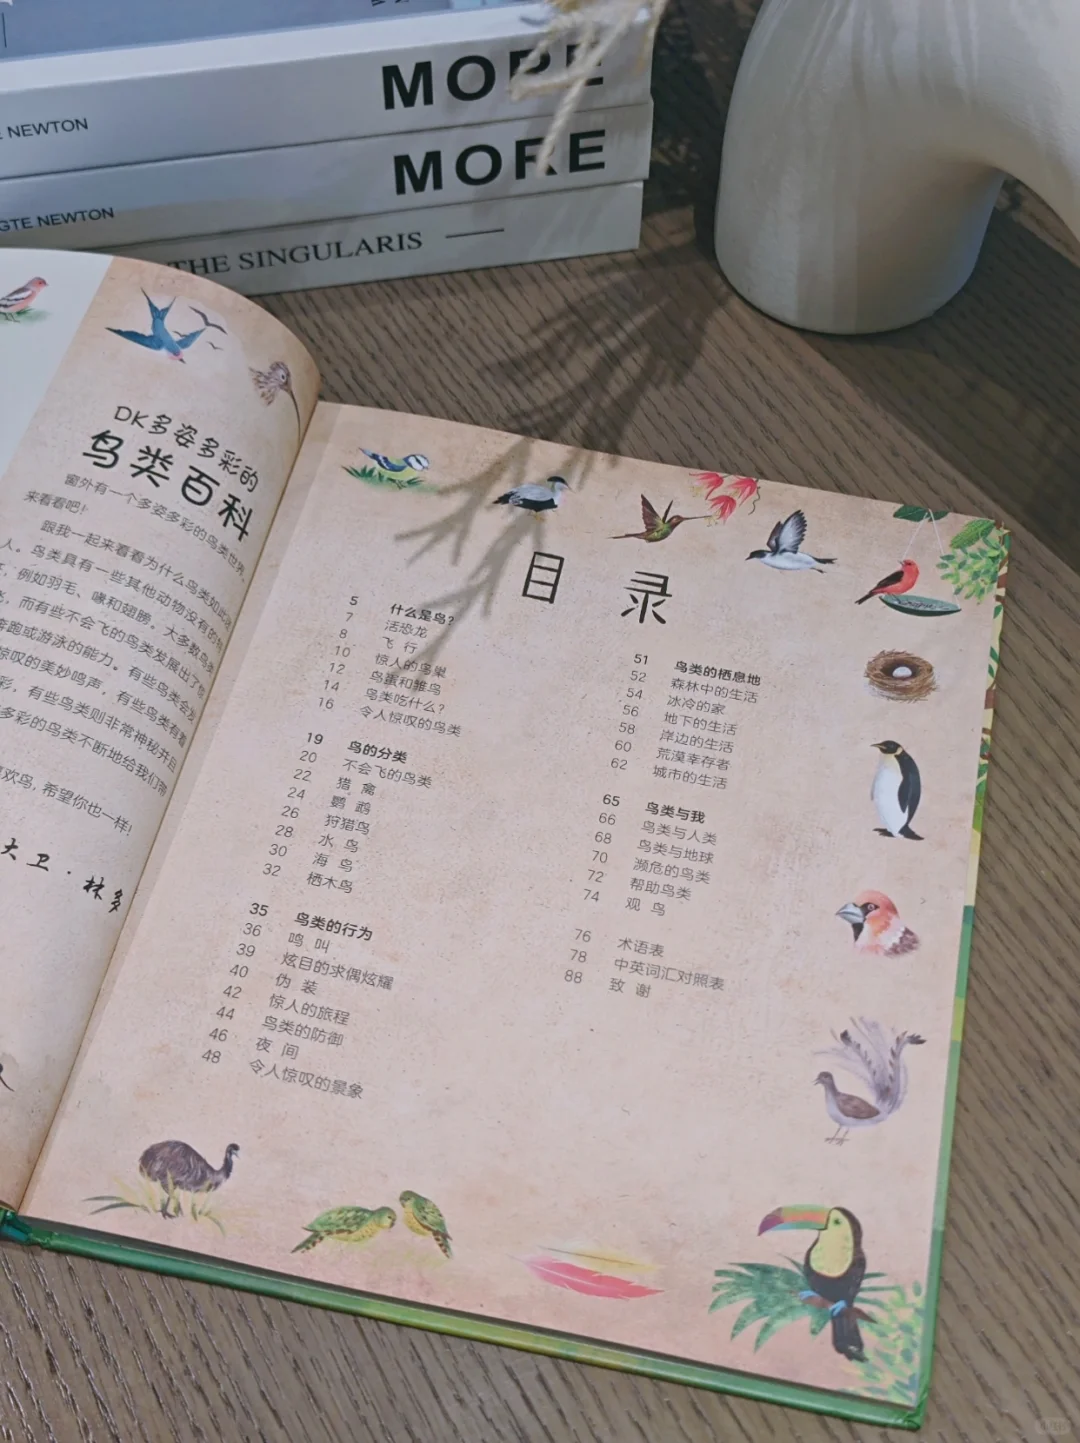 MORE
NEWTON
MORE
GTE NEWTON
THE SINGULARIS
DK多姿多彩的
鸟类百科
窗外有一个多姿多彩的鸟类世界,
来看看吧!
跟我一起来看看为什么鸟类如此
人。鸟类具有一些其他动物没有的特
例如羽毛、喙和翅膀。大多数鸟类
而有些不会飞的鸟类发展出了
奔跑或游泳的能力。有些鸟类会发
惊叹的美妙鸣声,有些鸟类有着
彩,有些鸟类则非常神秘并且
多彩的鸟类不断地给我们带
喜欢鸟,希望你也一样!
大卫·林多
目录
5 什么是鸟?
7 活恐龙
8 飞行
10 惊人的鸟巢
12 鸟蛋和雏鸟
14 鸟类吃什么?
16 令人惊叹的鸟类
19 鸟的分类
20 不会飞的鸟类
22 猎禽
24 鹦鹉
26 狩猎鸟
28 水鸟
30 海鸟
32 栖木鸟
35 鸟类的行为
36 鸣叫
39 炫目的求偶炫耀
40 伪装
42 惊人的旅程
44 鸟类的防御
46 夜间
48 令人惊叹的景象
51 鸟类的栖息地
52 森林中的生活
54 冰冷的家
56 地下的生活
58 岸边的生活
60 荒漠幸存者
62 城市的生活
65 鸟类与我
66 鸟类与人类
68 鸟类与地球
70 濒危的鸟类
72 帮助鸟类
74 观鸟
76 术语表
78 中英词汇对照表
88 致谢